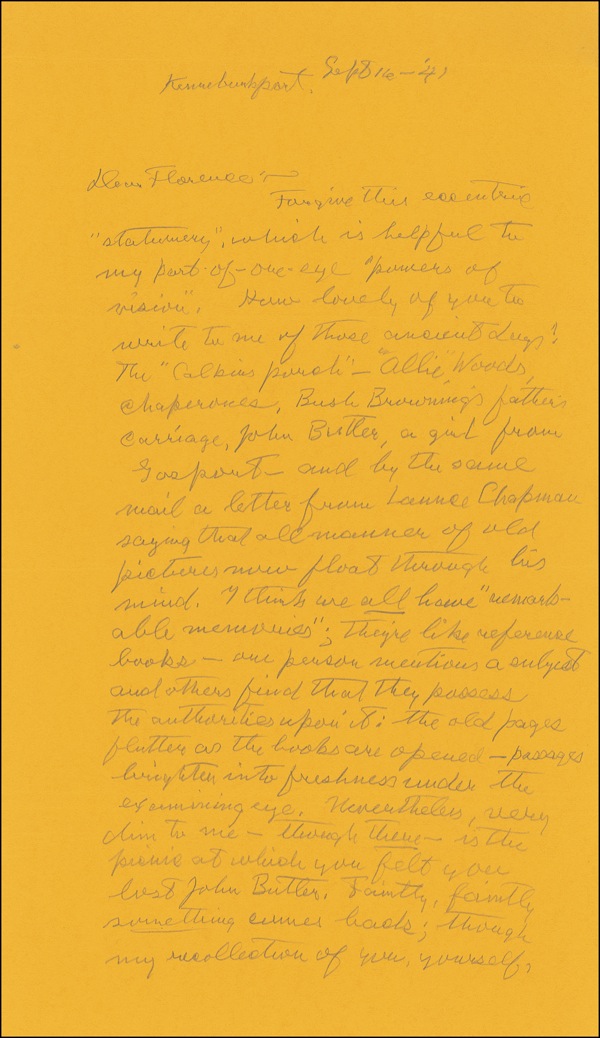 Kennebunkport, Sept 16 - '41
Dear Florence:—
Forgive this eccentric
"stationery", which is helpful to
my part-of-one-eye "powers of
vision". How lovely of you to
write to me of those ancient days!
The "Calkins porch" — "Allie" Woods,
chaperones, Bush Browning's father's
carriage, John Butler, a girl from
Gosport — and by the same
mail a letter from Lannce Chapman
saying that all manner of old
pictures now float through his
mind. I think we all have "remark-
able memories"; they're like reference
books — one person mentions a subject
and others find that they possess
the authorities upon it: the old pages
flutter as the books are opened — passages
brighten into freshness under the
examining eye. Nevertheless, very
dim to me — though there — is the
picnic at which you felt you
lost John Butler. Faintly, faintly
something comes back; though
my recollection of you, yourself,